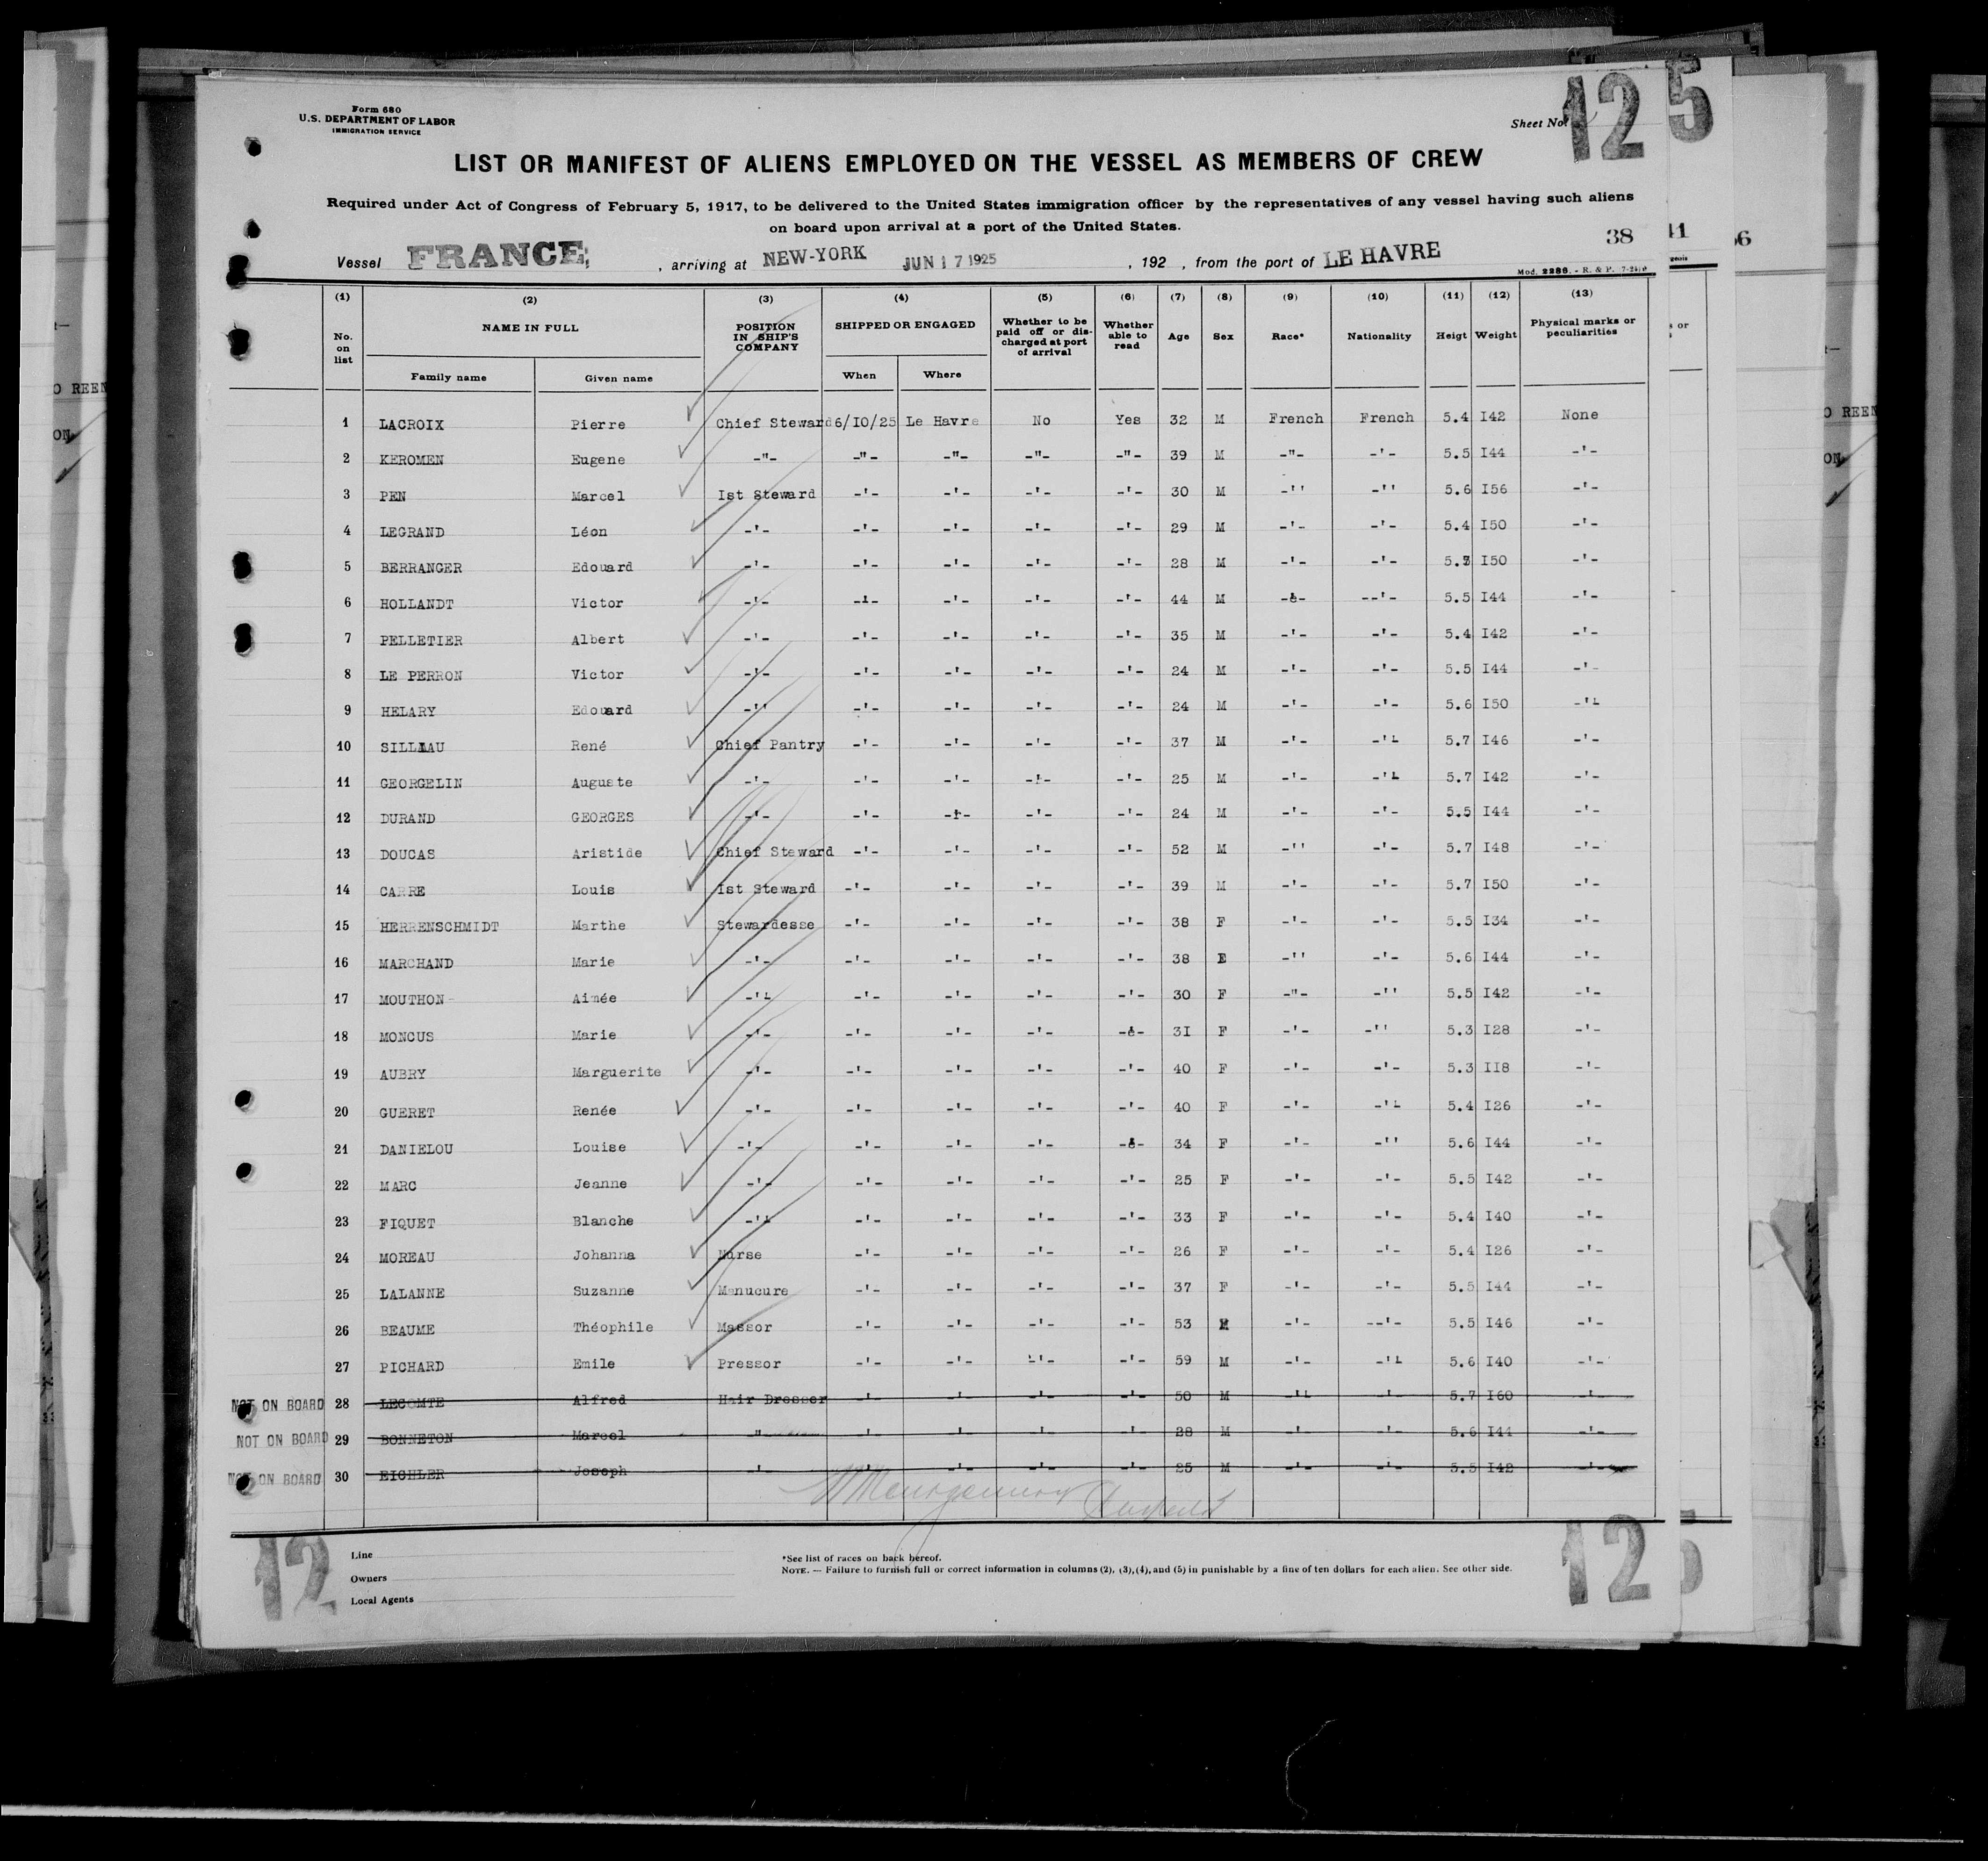 Form 680
U.S. DEPARTMENT OF LABOR
IMMIGRATION SERVICE
Sheet No. 125
LIST OR MANIFEST OF ALIENS EMPLOYED ON THE VESSEL AS MEMBERS OF CREW
Required under Act of Congress of February 5, 1917, to be delivered to the United States immigration officer by the representatives of any vessel having such aliens
on board upon arrival at a port of the United States.
38 41 56
Vessel FRANCE, arriving at NEW-YORK JUN 17 1925, 192 , from the port of LE HAVRE
Mod. 2286. - R. & P.
(1) (2) (3) (4) (5) (6) (7) (8) (9) (10) (11) (12) (13)
No. on list NAME IN FULL POSITION IN SHIP'S COMPANY SHIPPED OR ENGAGED Whether to be paid off or discharged at port of arrival Whether able to read Age Sex Race* Nationality Heigt Weight Physical marks or peculiarities
Family name Given name When Where
1 LACROIX Pierre Chief Steward 6/10/25 Le Havre No Yes 32 M French French 5.4 I42 None
2 KEROMEN Eugene -"- -"- -"- -"- -"- 39 M -"- -'- 5.5 I44 -'-
3 PEN Marcel Ist Steward -'- -'- -'- -'- 30 M -'' -'' 5.6 I56 -'-
4 LEGRAND Léon -'- -'- -'- -'- -'- 29 M -'- -'- 5.4 I50 -'-
5 BERRANGER Edouard -'- -'- -'- -'- -'- 28 M -'- -'- I50 -'-
6 HOLLANDT Victor -'- -'- -'- -'- -'- 44 M -'- --'- 5.5 I44 -'-
7 PELLETIER Albert -'- -'- -'- -'- -'- 35 M -'- -'- 5.4 I42 -'-
8 LE PERRON Victor -'- -'- -'- -'- -'- 24 M -'- -'- 5.5 I44 -'-
9 HELARY Edouard -'' -'- -'- -'- -'- 24 M -'- -'- 5.6 I50 -'-
10 SILLIAU René Chief Pantry -'- -'- -'- -'- 37 M -'- -'- 5.7 I46 -'-
11 GEORGELIN Auguste -'- -'- -'- -'- -'- 25 M -'- -'- 5.7 I42 -'-
12 DURAND GEORGES -'- -'- -'- -'- -'- 24 M -'- -'- 5.5 I44 -'-
13 DOUCAS Aristide Chief Steward -'- -'- -'- -'- 52 M -'' -'- 5.7 I48 -'-
14 CARRE Louis Ist Steward -'- -'- -'- -'- 39 M -'- -'- 5.7 I50 -'-
15 HERRENSCHMIDT Marthe Stewardesse -'- -'- -'- -'- 38 F -'- -'- 5.5 I34 -'-
16 MARCHAND Marie -'- -'- -'- -'- -'- 38 F -'' -'- 5.6 I44 -'-
17 MOUTHON Aimée -'- -'- -'- -'- -'- 30 F -"- -'' 5.5 I42 -'-
18 MONCUS Marie -'- -'- -'- -'- -'- 3I F -'- -'' 5.3 I28 -'-
19 AUBRY Marguerite -'- -'- -'- -'- -'- 40 F -'- -'- 5.3 II8 -'-
20 GUERET Renée -'- -'- -'- -'- -'- 40 F -'- -'- 5.4 I26 -'-
21 DANIELOU Louise -'- -'- -'- -'- -'- 34 F -'- -'' 5.6 I44 -'-
22 MARC Jeanne -'- -'- -'- -'- -'- 25 F -'- -'- 5.5 I42 -'-
23 FIQUET Blanche -'- -'- -'- -'- -'- 33 F -'- -'- 5.4 I40 -'-
24 MOREAU Johanna Nurse -'- -'- -'- -'- 26 F -'- -'- 5.4 I26 -'-
25 LALANNE Suzanne Manucure -'- -'- -'- -'- 37 F -'- -'- 5.5 I44 -'-
26 BEAUME Théophile Massor -'- -'- -'- -'- 53 M -'- --'- 5.5 I46 -'-
27 PICHARD Emile Pressor -'- -'- -'- -'- 59 M -'- -'- 5.6 I40 -'-
NOT ON BOARD 28 LECOMTE Alfred Hair Dresser -'- -'- -'- -'- 50 M -'' -'- 5.7 I60 -'-
NOT ON BOARD 29 BONNETON Marcel " -'- -'- -'- -'- 28 M -'- -'- 5.6 I44 -'-
NOT ON BOARD 30 EICHLER Joseph -'- -'- -'- -'- 25 M -'- -'- 5.5 I42 -'-
12
Line
Owners
Local Agents
*See list of races on back hereof.
NOTE. — Failure to furnish full or correct information in columns (2), (3), (4), and (5) in punishable by a fine of ten dollars for each alien. See other side.
125